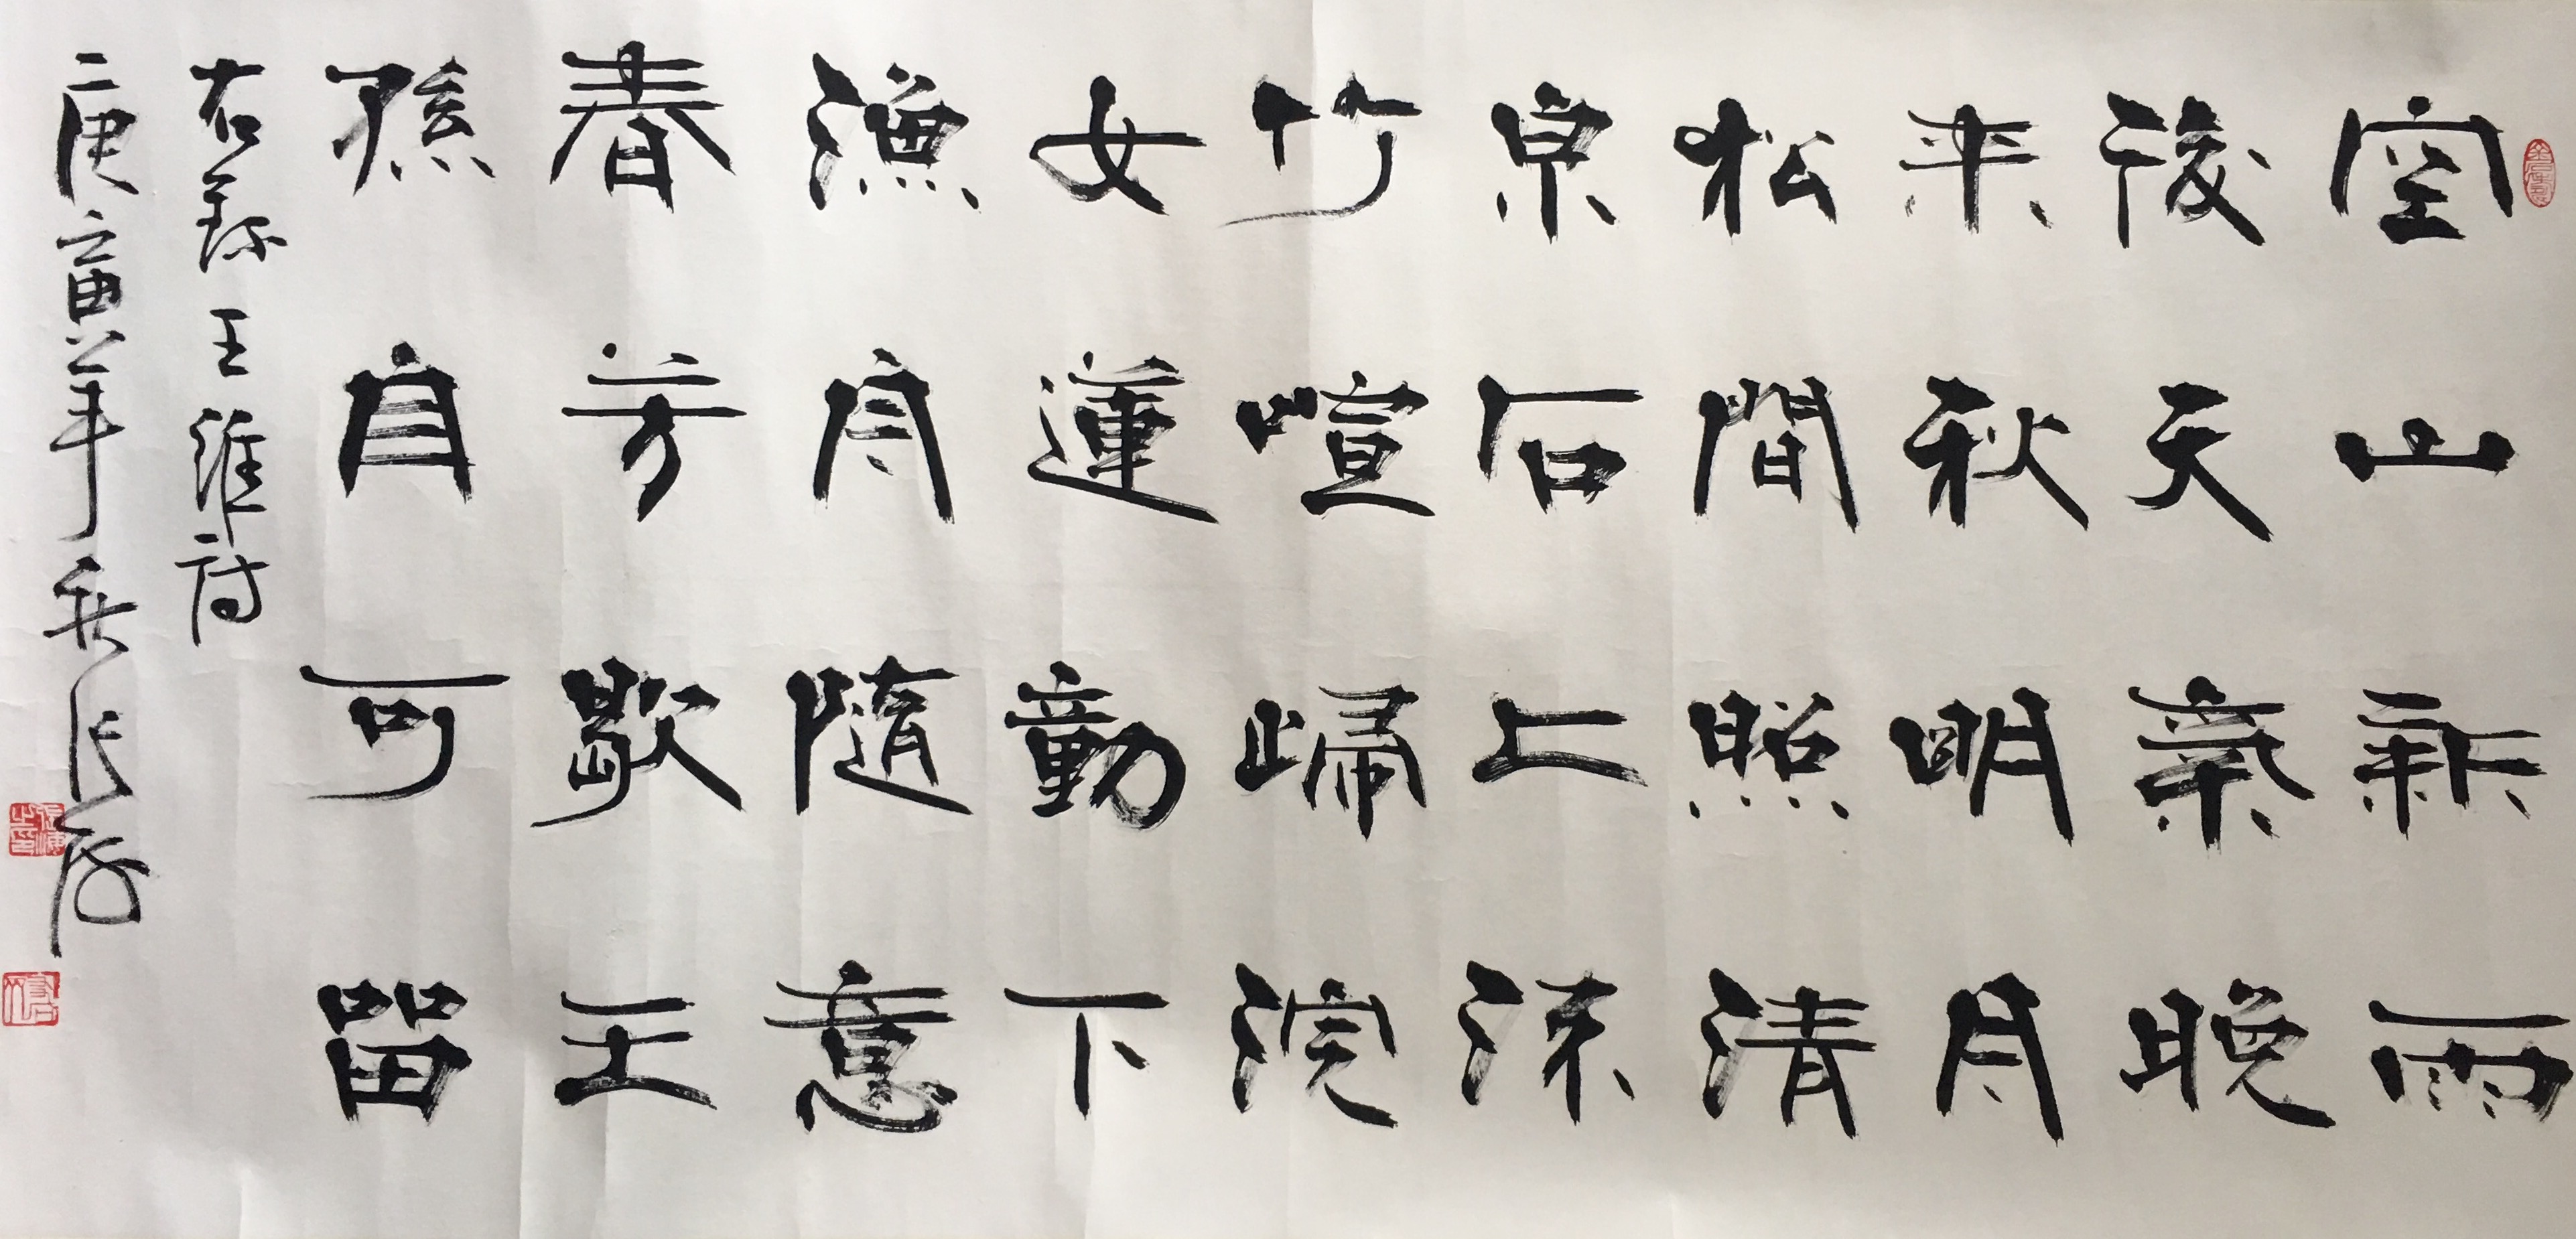 空山新雨
後天氣晚
来秋明月
松間照清
泉石上流
竹喧歸浣
女蓮動下
漁舟隨意
春芳歇王
孫自可留
右録王維詩
庚寅年秋張